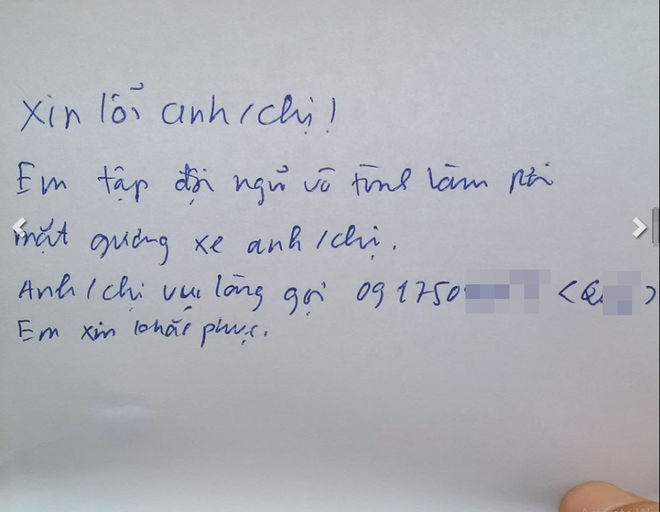 Xin lỗi anh/chị!
Em tập đội ngũ vô tình làm rơi
mặt gương xe anh/chị.
Anh/chị vui lòng gọi 091750 <Q )
Em xin khắc phục.